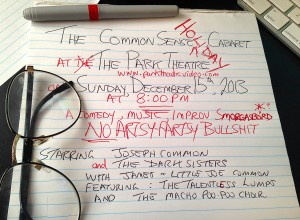 The Common Sense Cabaret
HOLIDAY
AT The Park Theatre
www.parktheatrevideo.com
Sunday, December 15th, 2013
AT 8:00 PM
A Comedy, Music, Improv SMORGASBORD
NO ARTSY FARTSY BULLSHIT
Starring Joseph Common
and The Dark Sisters
with James "Little Joe" Common
Featuring: The Talentless Lumps
and the Macho Poo-Poo Choir